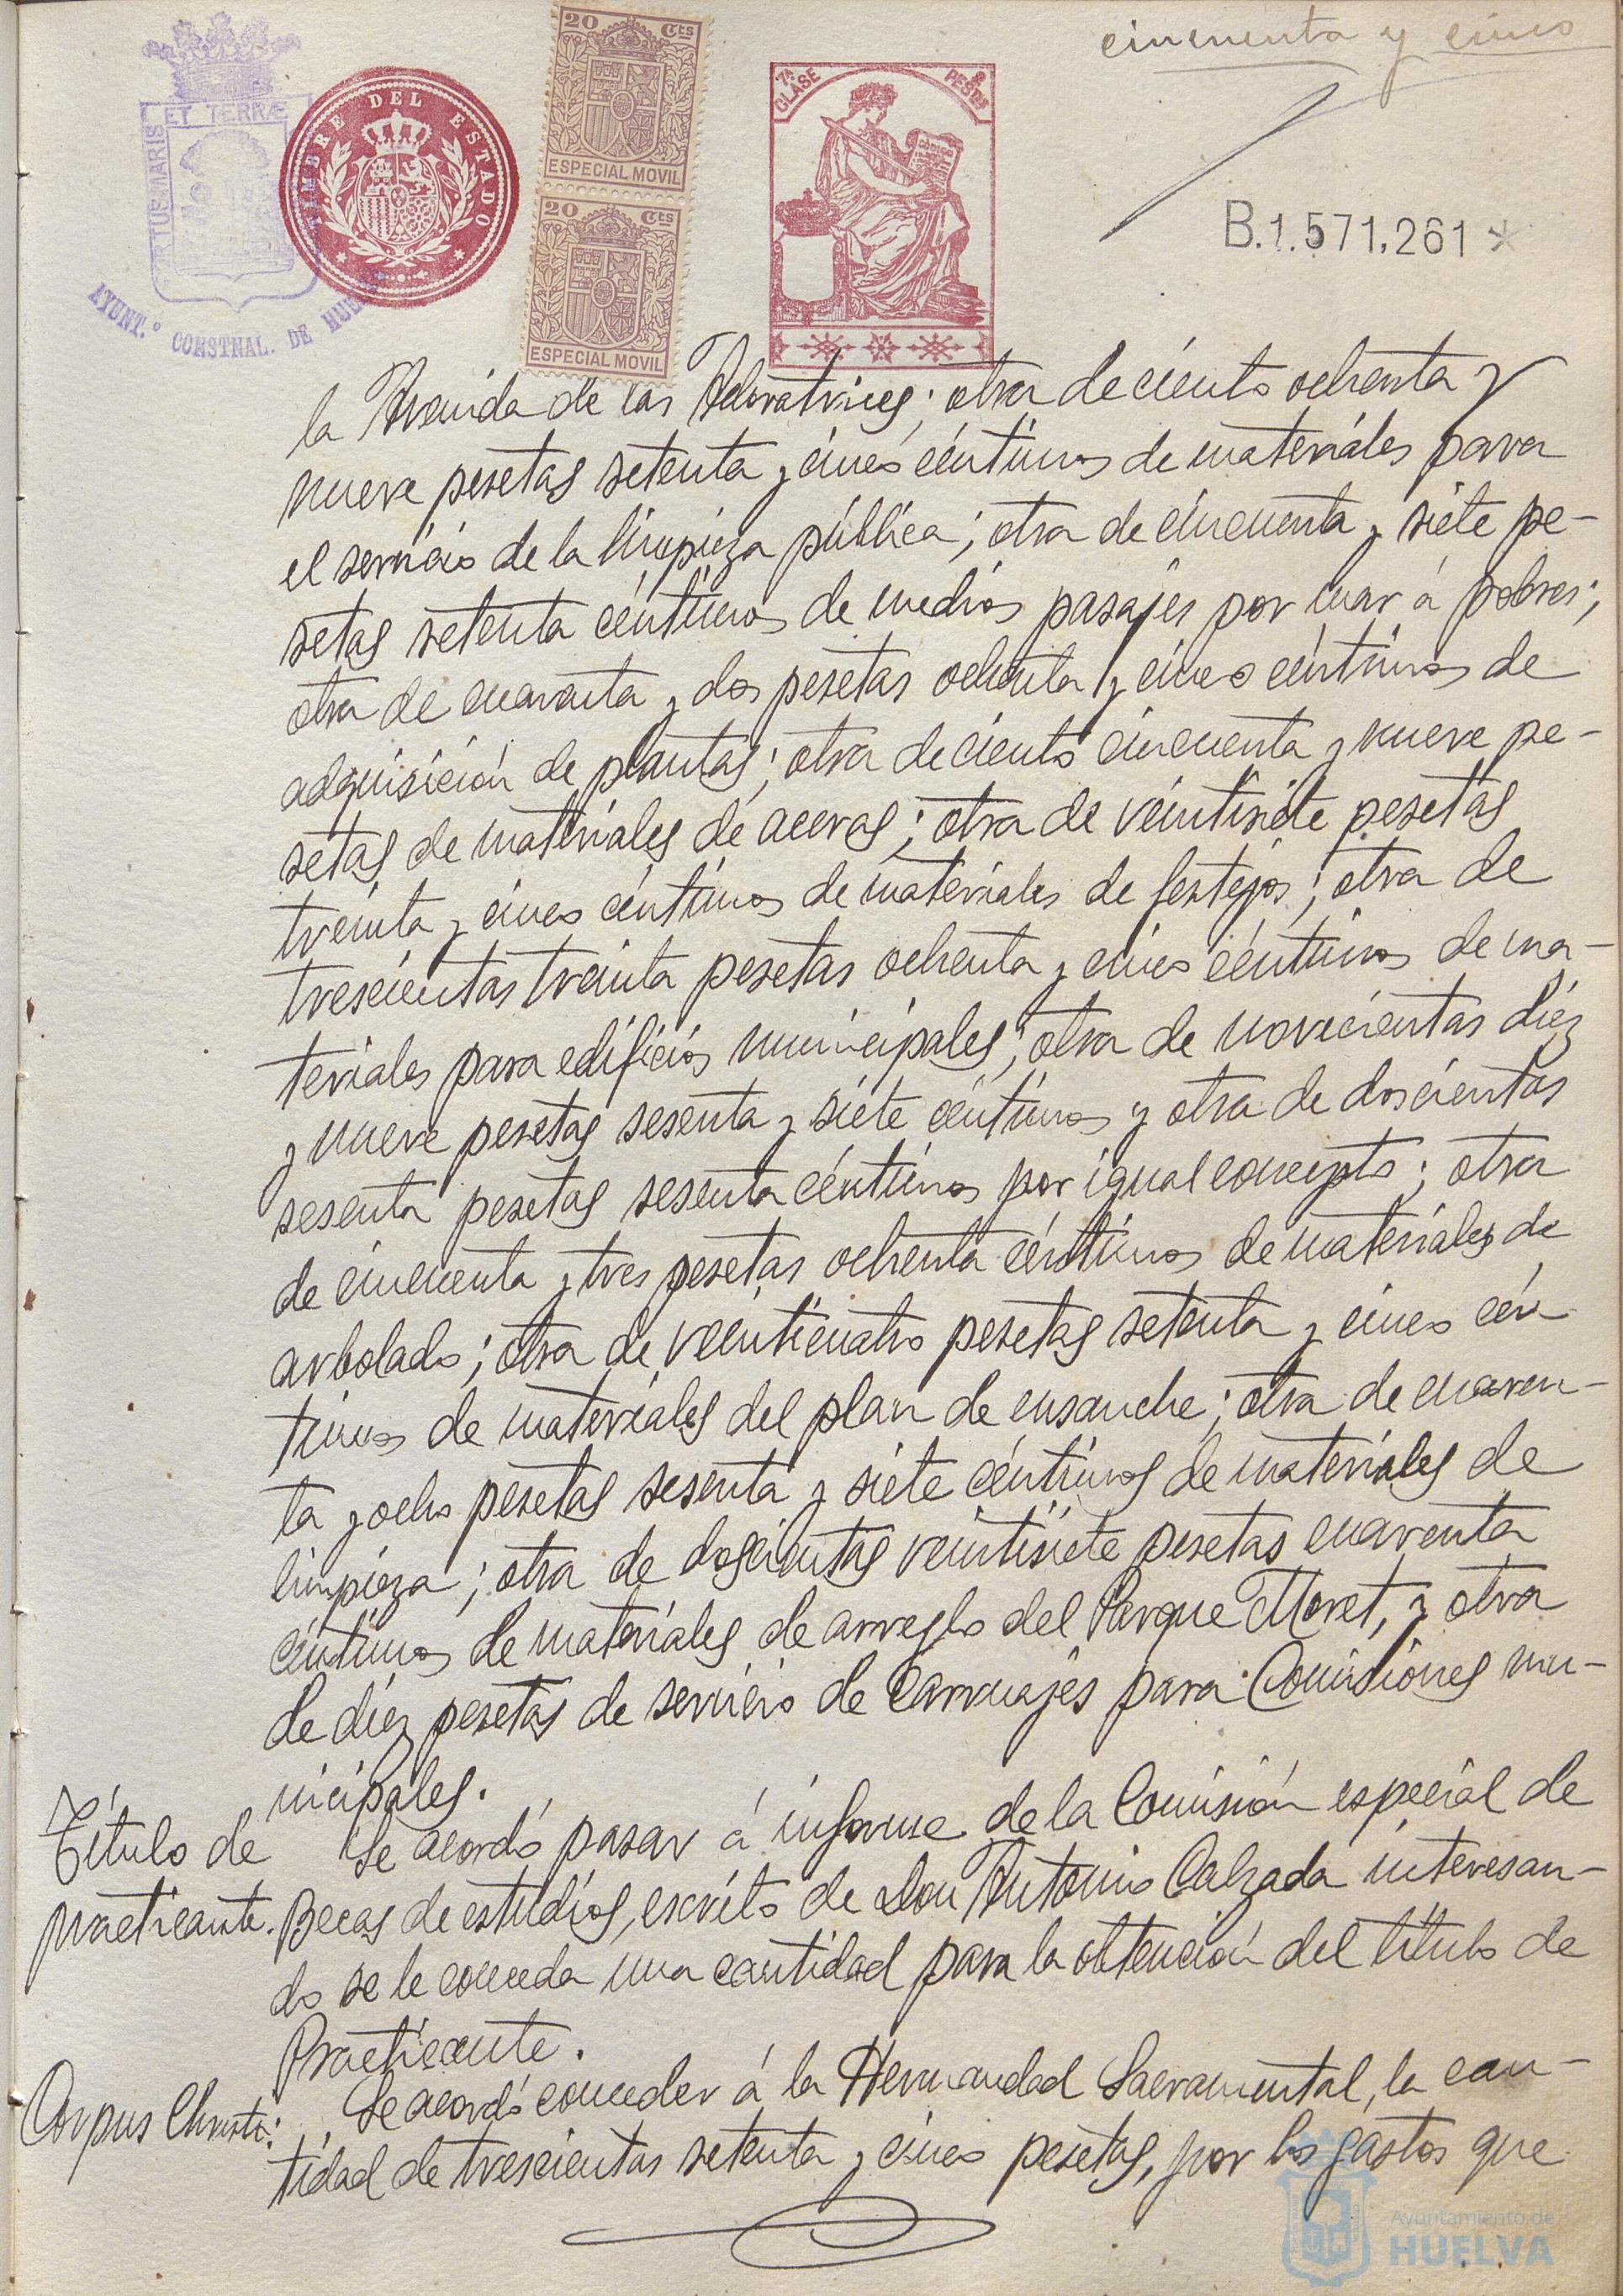 cincuenta y cinco
ET TERRÆ
PORTUS MARIS
AYUNT.º CONSTNAL. DE HUELVA
TIMBRE DEL ESTADO
20 CTS
ESPECIAL MOVIL
20 CTS
ESPECIAL MOVIL
7ª CLASE
8 PESOS
B.1.571.261 *
la Avenida de las Adoratrices; otra de ciento ochenta y
nueve pesetas setenta y cinco céntimos de materiales para
el servicio de la limpieza pública; otra de cincuenta y siete pe-
setas setenta céntimos de medios pasajes por mar á pobres;
otra de cuarenta y dos pesetas ochenta y cinco céntimos de
adquisición de plantas; otra de ciento cincuenta y nueve pe-
setas de materiales de aceras; otra de veintisiete pesetas
treinta y cinco céntimos de materiales de festejos; otra de
trescientas treinta pesetas ochenta y cinco céntimos de ma-
teriales para edificios municipales; otra de novecientas diez
y nueve pesetas sesenta y siete céntimos y otra de doscientas
sesenta pesetas sesenta céntimos por igual concepto; otra
de cincuenta y tres pesetas ochenta céntimos de materiales de
arbolado; otra de veinticuatro pesetas setenta y cinco cén
timos de materiales del plan de ensanche; otra de cuaren-
ta y ocho pesetas sesenta y siete céntimos de materiales de
limpieza; otra de doscientas veintisiete pesetas cuarenta
céntimos de materiales de arreglo del Parque Moret, y otra
de diez pesetas de servicio de carruajes para Comisiones mu-
nicipales.
Título de
practicante.
Se acordó pasar á informe de la Comisión especial de
Becas de estudios, escrito de Don Antonio Calzada interesan-
do se le conceda una cantidad para la obtención del título de
Practicante.
Corpus Christi:
Se acordó conceder á la Hermandad Sacramental, la can-
tidad de trescientas setenta y cinco pesetas, por los gastos que
Ayuntamiento de
HUELVA